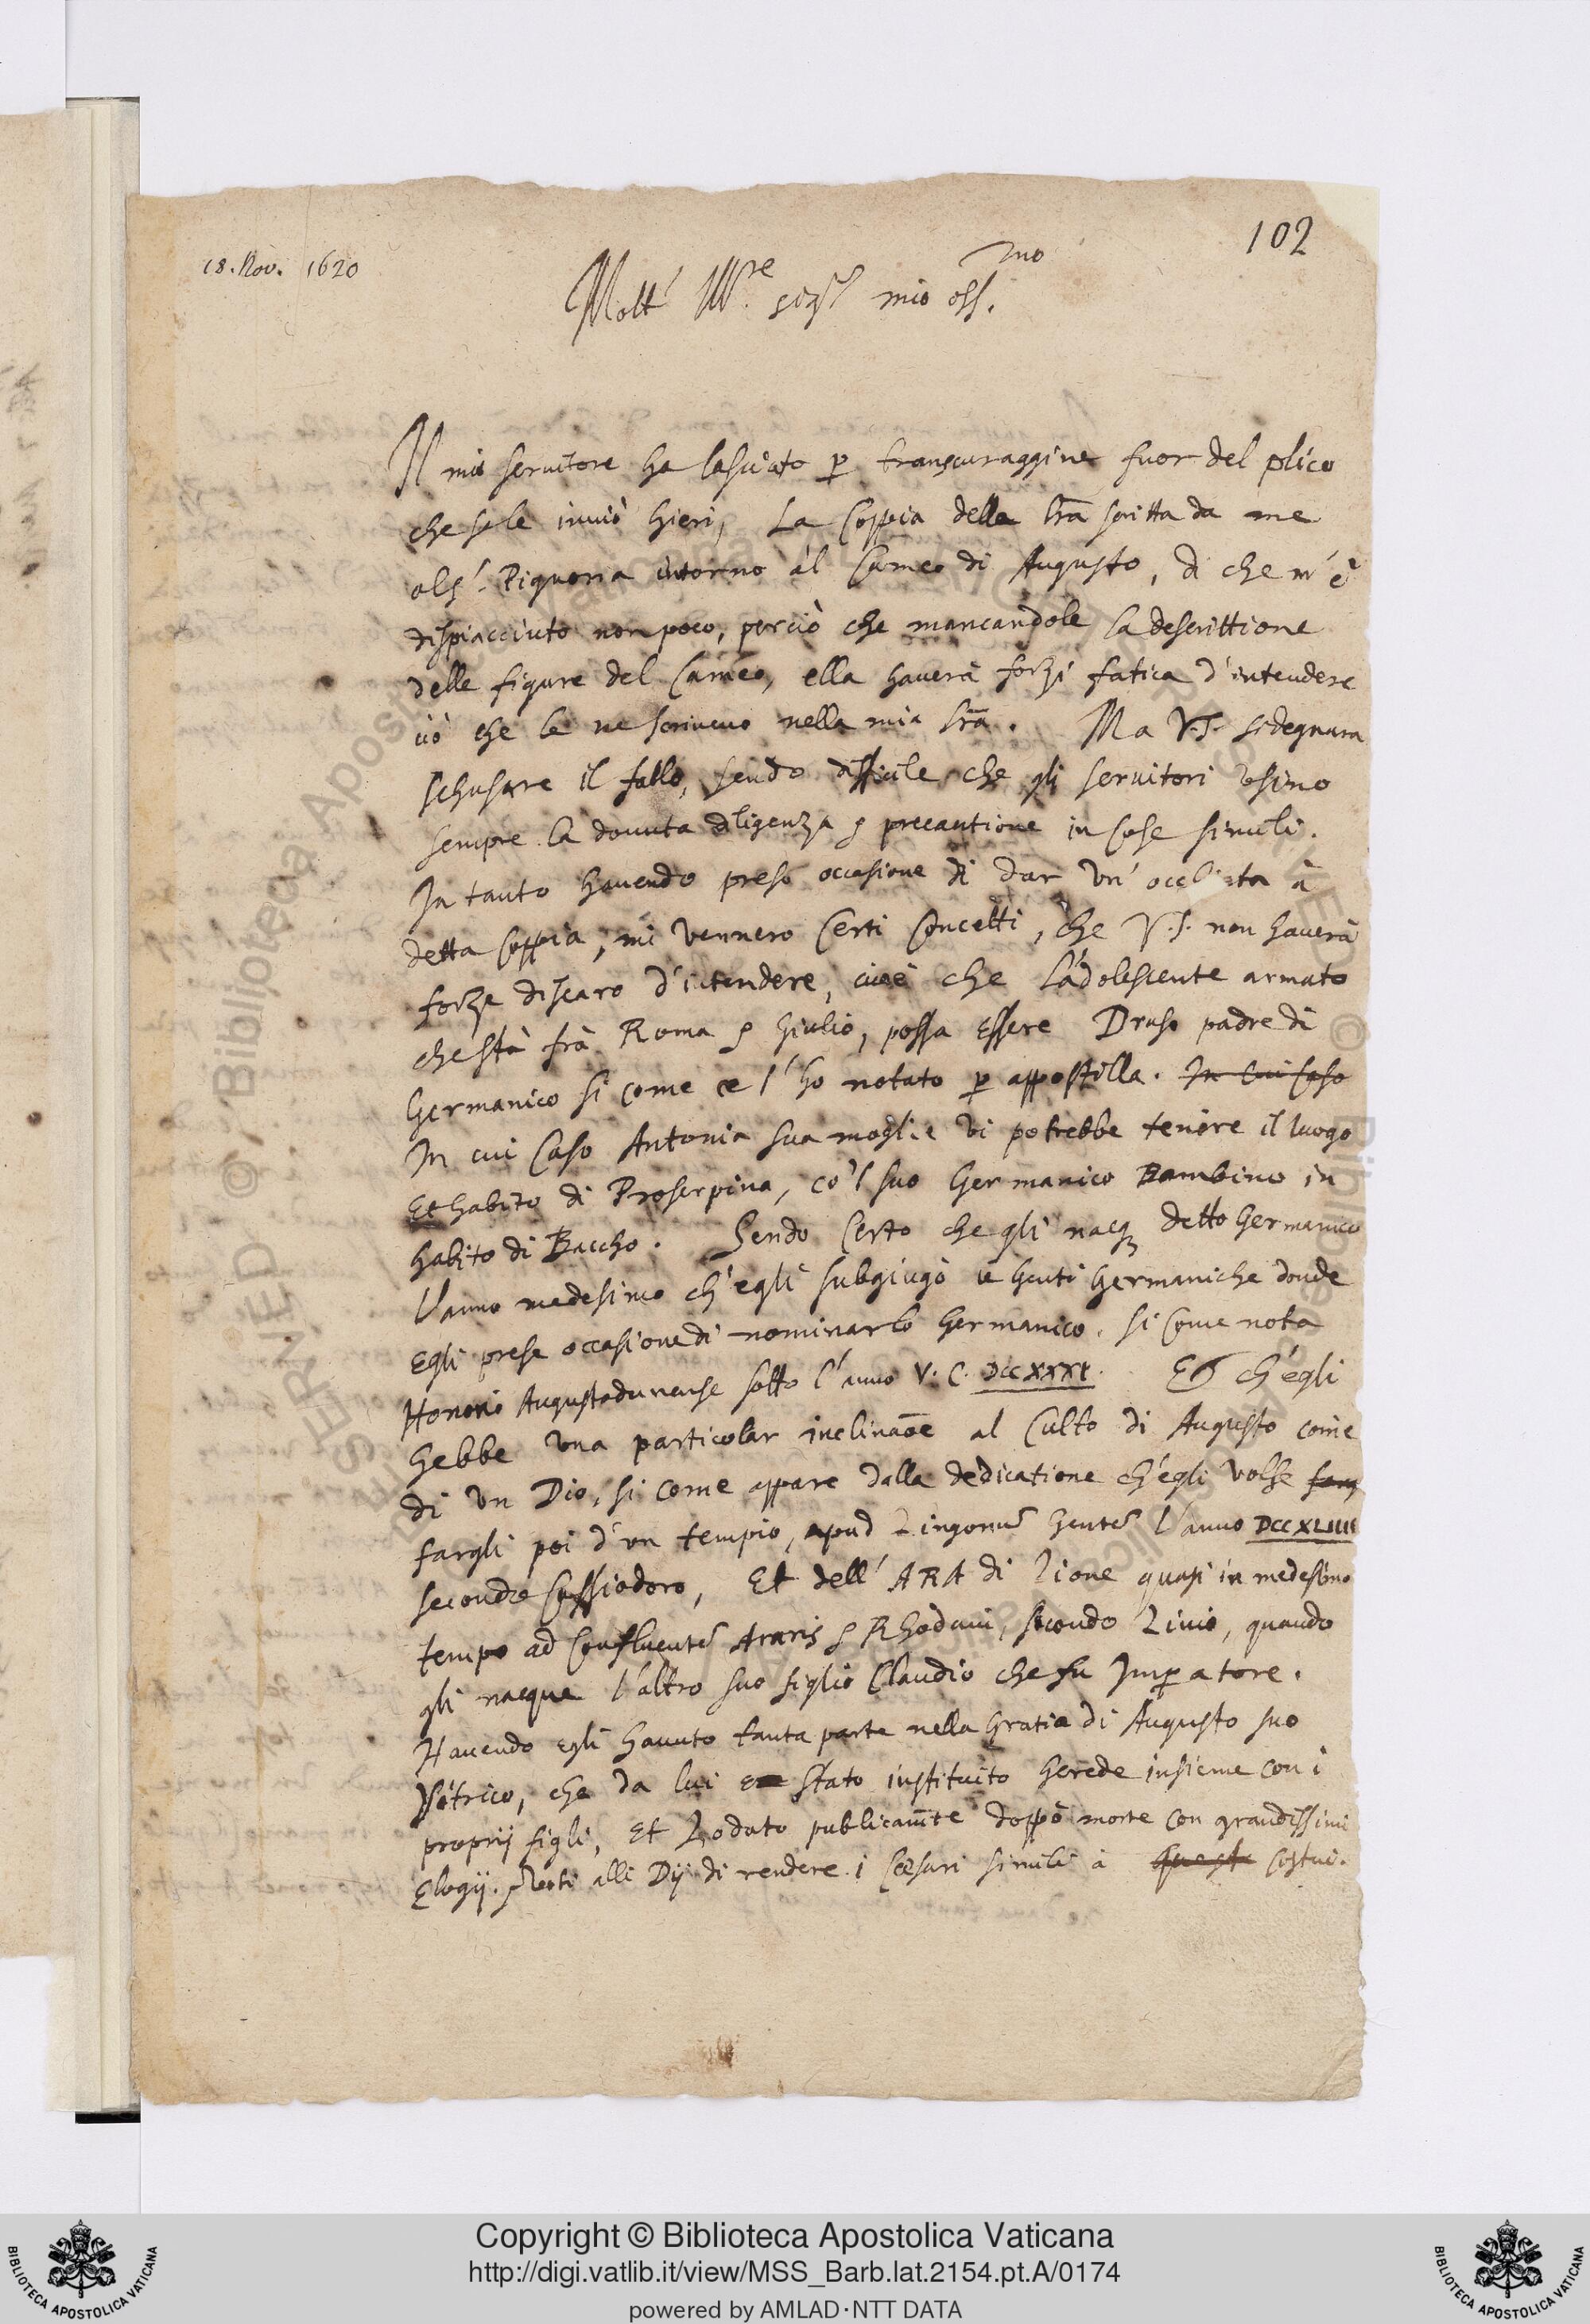 102
18. Nov. 1620
Molt' Ill.re sig.r mio oss.mo
Il mio servitore ha lasciato p transcuraggine fuor del plico
che se le inviò hieri, La Coppia della lra scritta da me
al s.r Pignoria intorno al Cameo di Augusto, di che m'è
dispiacciuto non poco, perciò che mancandole la descrittione
delle figure del Cameo, ella haverà forzi fatica d'intendere
ciò che le ne scrivevo nella mia lra. Ma V.S. si degnara
schusare il fallo, sendo difficile che gli servitori usino
sempre la dovuta diligenza & precautione in cose simili.
In tanto havendo preso occasione di dar un' occhiata à
detta Coppia, mi vennero Certi Concetti, che V.S. non haverà
forze discaro d'intendere, cioè che L'adolescente armato
che stà frà Roma & Giulio, possa Essere Druso padre di
Germanico si come ce l'ho notato p appostilla. In cui Caso
In cui Caso Antonia sua moglie vi potrebbe tenere il luogo
Et habito di Proserpina, co'l suo Germanico Bambino in
habito di Baccho. Sendo Certo che gli nacq detto Germanico
l'anno medesimo ch'egli subgiugò le Genti Germaniche donde
Egli prese occasione di nominarlo Germanico. si Come nota
Honorio Augustodunense sotto l'anno V.C. DCCXXXI. Et ch'egli
hebbe una particolar inclinaoe al Culto di Augusto come
di un Dio, si come appare dalla dedicatione ch'egli volse
fargli poi d'un tempio, apud Lingonum Gentem l'anno DCCXLIIII
secondo Cassiodoro, Et dell' ARA di Lione quasi in medesimo
tempo ad Confluentem Araris & Rhodani, secondo Livio, quando
gli nacque l'altro suo figlio Claudio che fu Imperatore.
Havendo egli havuto tanta parte nella Gratia di Augusto suo
Vitrico, che da lui stato instituito herede insieme con i
proprij figli, Et Lodato publicamte doppò morte con grandissimi
Elogij. & Voti alli Dij di rendere i Cesari simili à quest costui.
Copyright © Biblioteca Apostolica Vaticana
http://digi.vatlib.it/view/MSS_Barb.lat.2154.pt.A/0174
powered by AMLAD·NTT DATA
BIBLIOTECA APOSTOLICA VATICANA
BIBLIOTECA APOSTOLICA VATICANA